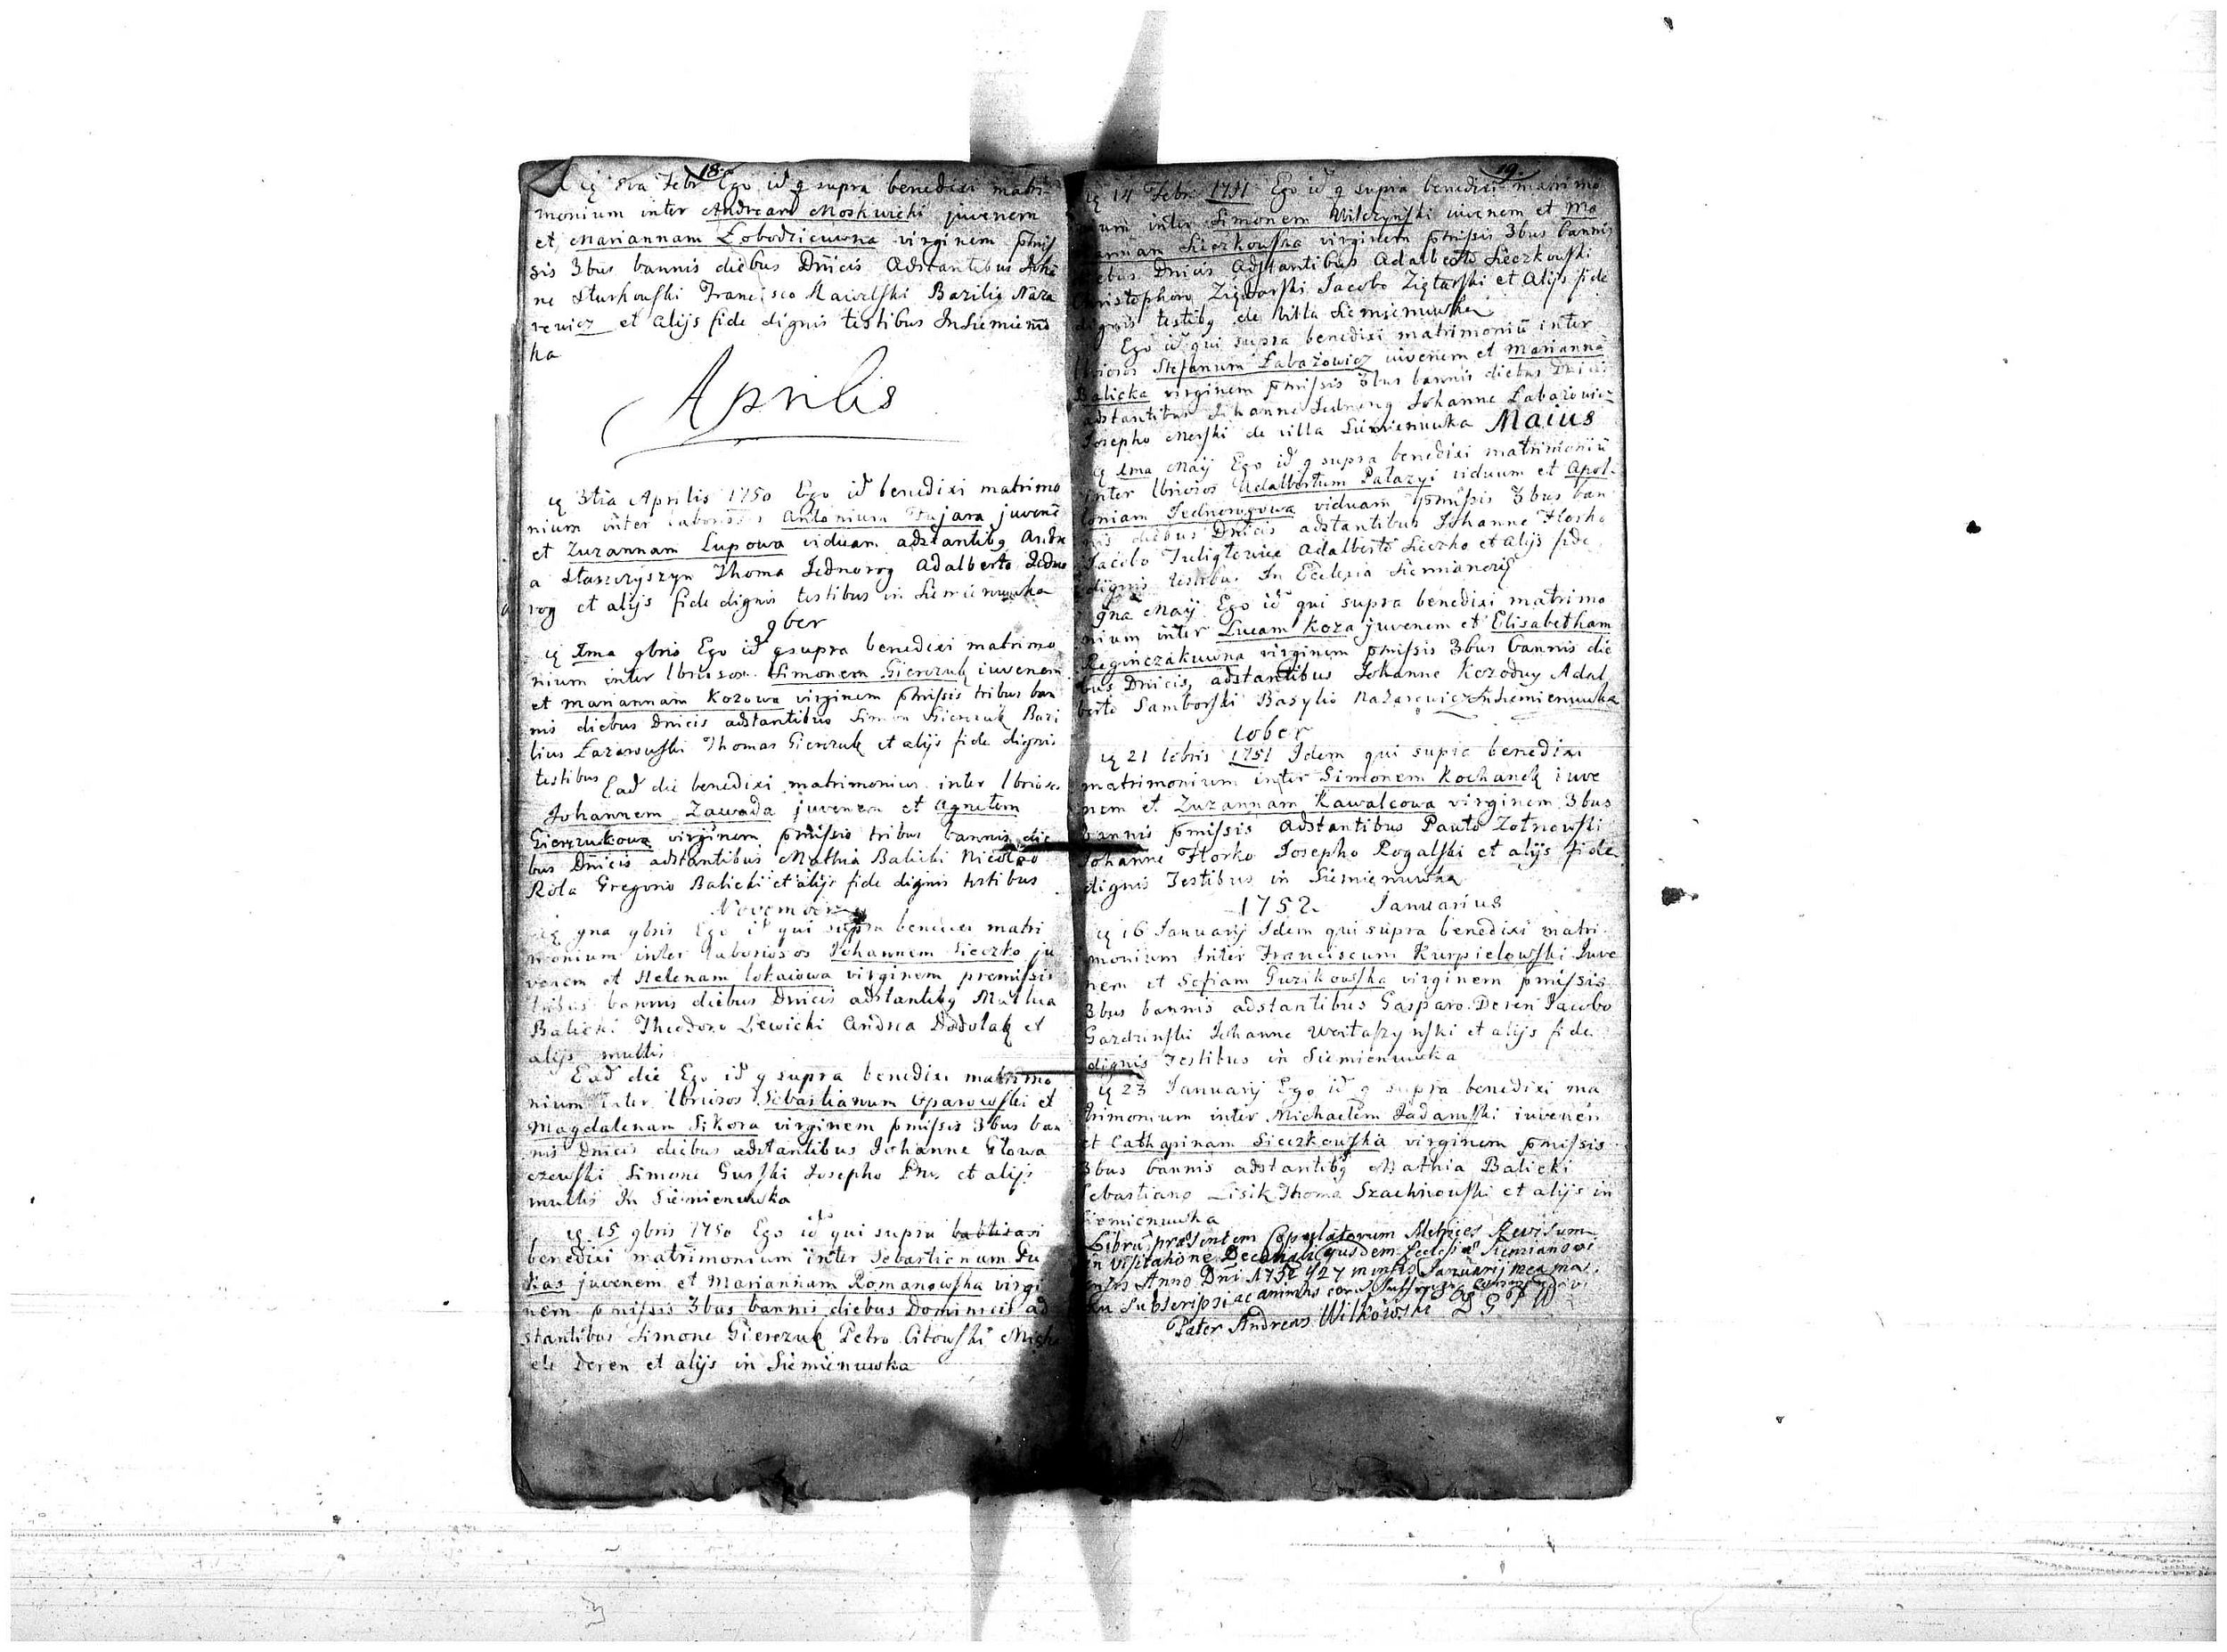 18
Febr Ego id q supra benedixi matri-
monium inter Andream Moskwicki juvenem
et Mariannam Łobodziewna virginem pmis
sis 3bus bannis diebus Dnicis Adstantibus Joha
ne Francisco Bazilio Naza
rewicz et alijs fide dignis testibus In Siemieniu
ka
Aprilis
3tia Aprilis 1750 Ego id benedixi matrimo
nium inter Antonium juvene
et Zuzannam Lupowa viduam adstantibq Andre
a Staszczyszyn Thoma Jednorog Adalberto Jedno
rog et alijs fide dignis testibus in Siemienuwka
9ber
Ima 9bris Ego id q supra benedixi matrimo
nium inter lbriosos Simonem Gierczuk iuvenem
et Mariannam Kozowa virginem pmissis tribus ban
nis diebus Dnicis adstantibus Simon Gierczuk Bazi
lius Łazarowski Thomas Gierczuk et alijs fide dignis
testibus Ead die benedixi matrimonium inter lbriosos
Johannem Zawada juvenem et Agnetem
Gierczukowa virginem pmissis tribus bannis die
bus Dnicis adstantibus Mathia Balicki Nicolao
Rola Gregorio Balicki et alijs fide dignis testibus
November
9na 9bris Ego id qui supra benedixi matri
monium inter laboriosos Johannem Sieczko ju
venem et Helenam lokaiowa virginem premissis
tribus bannis diebus Dnicis adstantibq Mathia
Balicki Theodoro Lewicki Andrea et
alijs multis
Ead die Ego id q supra benedixi matrimo
nium inter lbriosos Sebastianum Oparowski et
Magdalenam Sikora virginem pmissis 3bus ban
nis Dnicis diebus adstantibus Johanne Głowa
czewski Simone Gurski Josepho et alijs
multis In Siemienuwka
15 9bris 1750 Ego id qui supra babtizavi
benedixi matrimonium inter Sebastianum
juvenem et Mariannam Romanowska virgi
nem pmissis 3bus bannis diebus Dominicis ad
stantibus Simone Gierczuk Petro Citowski Micha
ele Deren et alijs in Siemienuwka
19
14 Febr 1751 Ego id q supra benedixi matrimo
nium inter Simonem Wilczynski iuvenem et Ma
riannam Sieczkowska virginem pmissis 3bus bannis
diebus Dnicis Adstantibus Adalberto Sieczkowski
Christophoro Jacobo et Alijs fide
dignis testibq de villa Siemienuwka
Ego id qui supra benedixi matrimoniu inter
lbriosos Stefanum Łabazowicz iuvenem et Marianna
Balicka virginem pmissis 3bus bannis diebus Dnicis
adstantibus Johanne Johanne Łabazowicz
Josepho de villa Siemienuwka Maius
Ima Maij Ego id q supra benedixi matrimoniu
inter lbriosos Adalbertum Pałazyi viduum et Apol-
loniam Jednorogowa viduam pmissis 3bus ban
nis diebus Dnicis adstantibus Johanne Horko
Jacobo Adalberto Sieczko et Alijs fide
dignis testibus In Ecclesia
9na Maij Ego id qui supra benedixi matrimo
nium inter Lucam Koza juvenem et Elisabetham
Reginczakuwna virginem pmissis 3bus bannis die
bus Dnicis adstantibus Johanne Kozoduy Adal
berto Samborski Basylio Nazarewicz In Siemienuwka
10ber
21 10bris 1751 Idem qui supra benedixi
matrimonium inter Simonem Kochanek iuve
nem et Zuzannam Kawalcowa virginem 3bus
bannis pmissis adstantibus Paulo Zotnowski
Johanne Horko Josepho Rogalski et alijs fide
dignis Testibus in Siemienuwka
1752 Januarius
16 Januarij Idem qui supra benedixi matri
monium Inter Franciscum Kurpielowski Iuve
nem et Sofiam Guzikowska virginem pmissis
3bus bannis adstantibus Gasparo Deren Jacobo
Gazdzinski Johanne et alijs fide
dignis Testibus in Siemienuwka
23 Januarij Ego id q supra benedixi ma
trimonium inter Michaelem Sadamski iuvenem
et Catharinam Sieczkowska virginem pmissis
3bus bannis adstantibq Mathia Balicki
Sebastiano Lisik Thoma Szachnowski et alijs in
Siemienuwka
Libru prasentem Copulatorum Metrices Revisum
in visitatione Decanali ejusdem Ecclesiae
Anno Dni 1752 27 mensis Januarij mea ma
nu Subscripsi ac
Pater Andreas Wilkowski